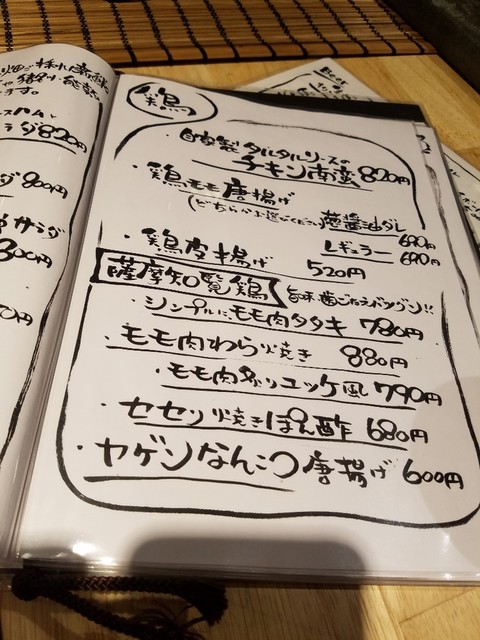 鶏
・自家製タルタルソースの
チキン南蛮 820円
・鶏モモ唐揚げ
(どちらかお選びください) 葱醤油ダレ 690円
レギュラー 690円
・鶏皮揚げ 520円
薩摩知覧鶏 旨味、歯ごたえバツグン!!
・シンプルにモモ肉タタキ 780円
・モモ肉わら焼き 880円
・モモ肉炙りユッケ風 790円
・セセリ焼きぽん酢 680円
・ヤゲンなんこつ唐揚げ 600円
ラダ 820円
800円
サラダ
800円
Beer